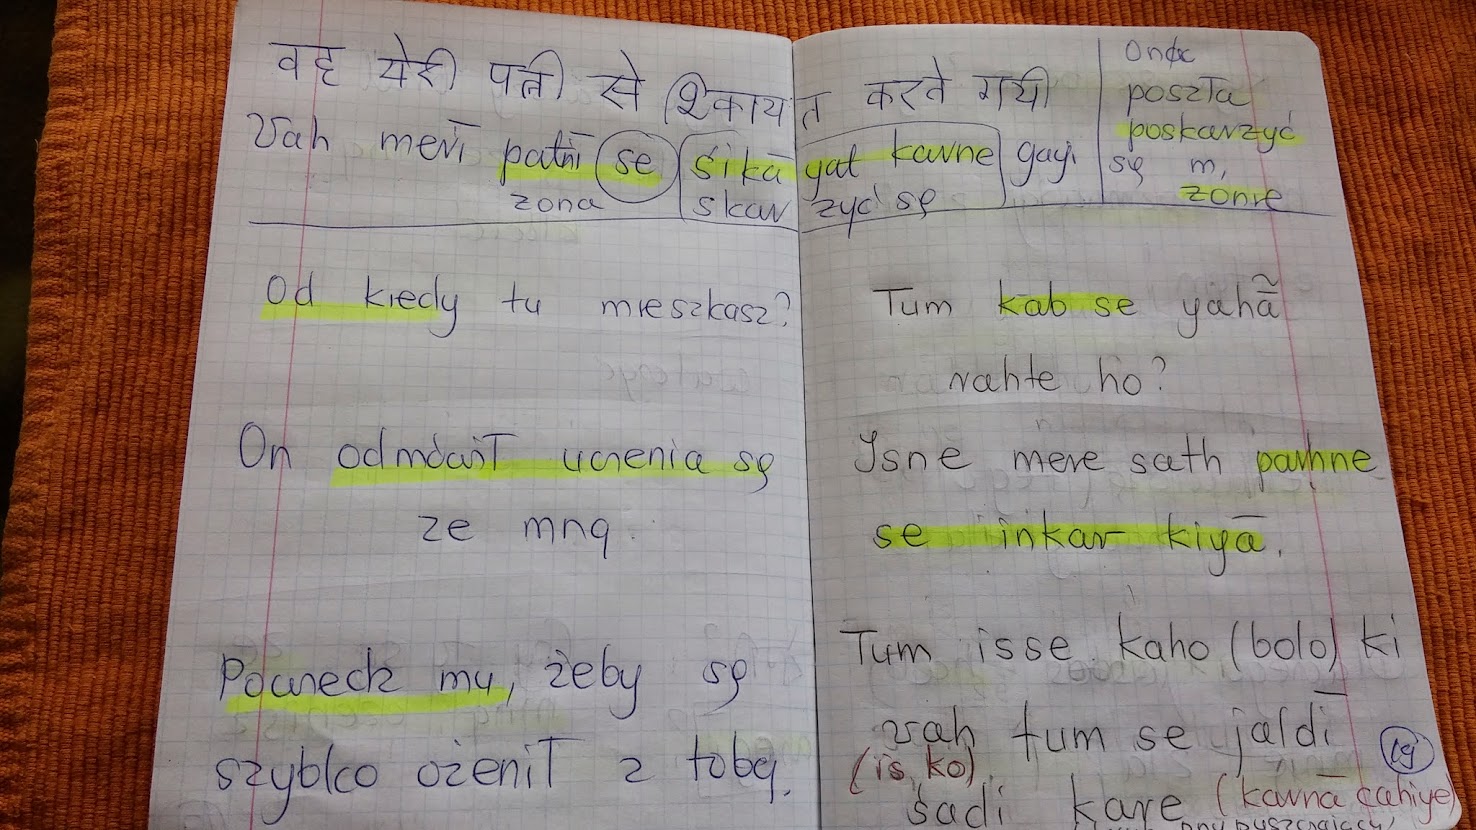 वह येरी पत्नी से शिकायत करते गयी
Vah merī patnī se śikāyat karne gayi
żona skarżyć się
Ona
poszła
poskarżyć
się m,
żonie
Od kiedy tu mieszkasz?
Tum kab se yahā̃
rahte ho?
On odmówił uczenia się
ze mną.
Isne mere sath parhne
se inkar kiyā.
Powiedz mu, żeby się
szybko ożenił z tobą.
Tum isse kaho (bolo) ki
vah tum se jaldī
(is ko)
śadi kare (karnā cahiye)